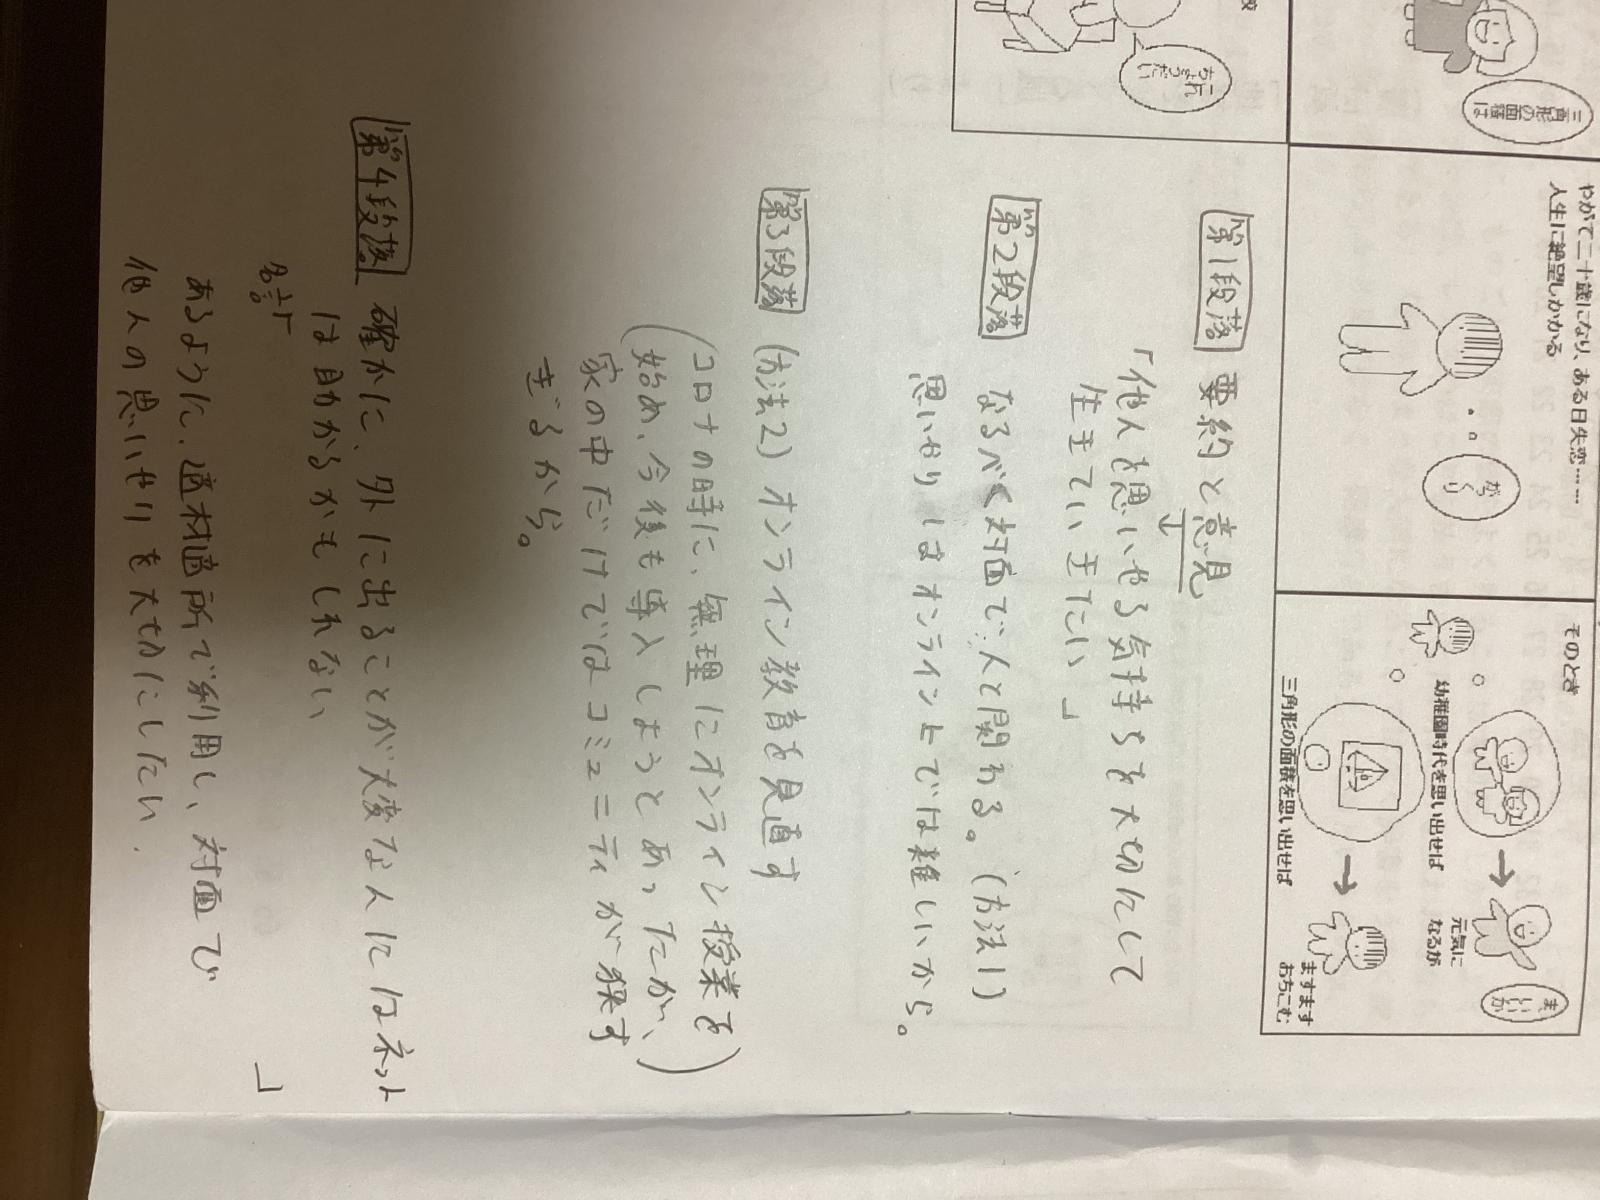 これ
ちょうだい
三角形
の面積
は
やがて二十歳になり、ある日失恋……
人生に絶望しかかる
がっくり
そのとき
幼稚園時代を思い出せば
元気に
なるが
まいいか
三角形の面積を思い出せば
ますます
おちこむ
第1段落 要約と意見
「他人を思いやる気持ちを大切にして
生きていきたい」
第2段落 なるべく対面で人と関わる。(方法1)
思いやりはオンライン上では難しいから。
第3段落 (方法2) オンライン教育を見直す
(コロナの時に、無理にオンライン授業を
始め、今後も導入しようとあったが、)
家の中だけではコミュニティが狭す
ぎるから。
第4段落 確かに、外に出ることが大変な人にはネット
は助かるかもしれない
あるように、適材適所で利用し、対面で
他人の思いやりを大切にしたい.